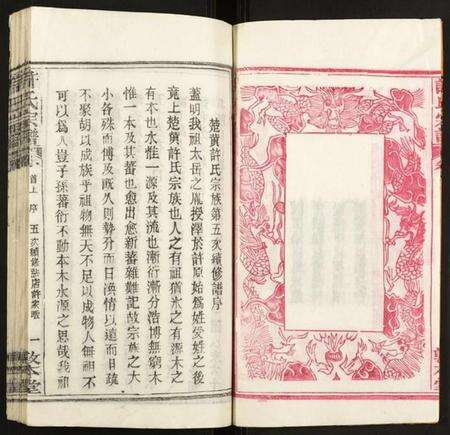 楚黄許氏宗族第五次續修譜序
蓋明我祖太岳之胤授澤於許原始爲姓受姓之後
竟上楚黄許氏宗族也人之有祖猶水之有源木之
有本也水惟一源及其流也漸衍漸分浩博無窮木
惟一本及其蕃也愈出愈新蕃雜難記故宗族之大
小各殊而博及既久則勢分而日渙情以遠而日疏
不聚胡以成族乎祖物無天不足以成物人無祖不
可以爲人豈子孫蕃衍不動本木水源之思哉我祖
許氏宗譜
首上 序 五次續修
一 敦本堂
許氏宗譜
敦本堂